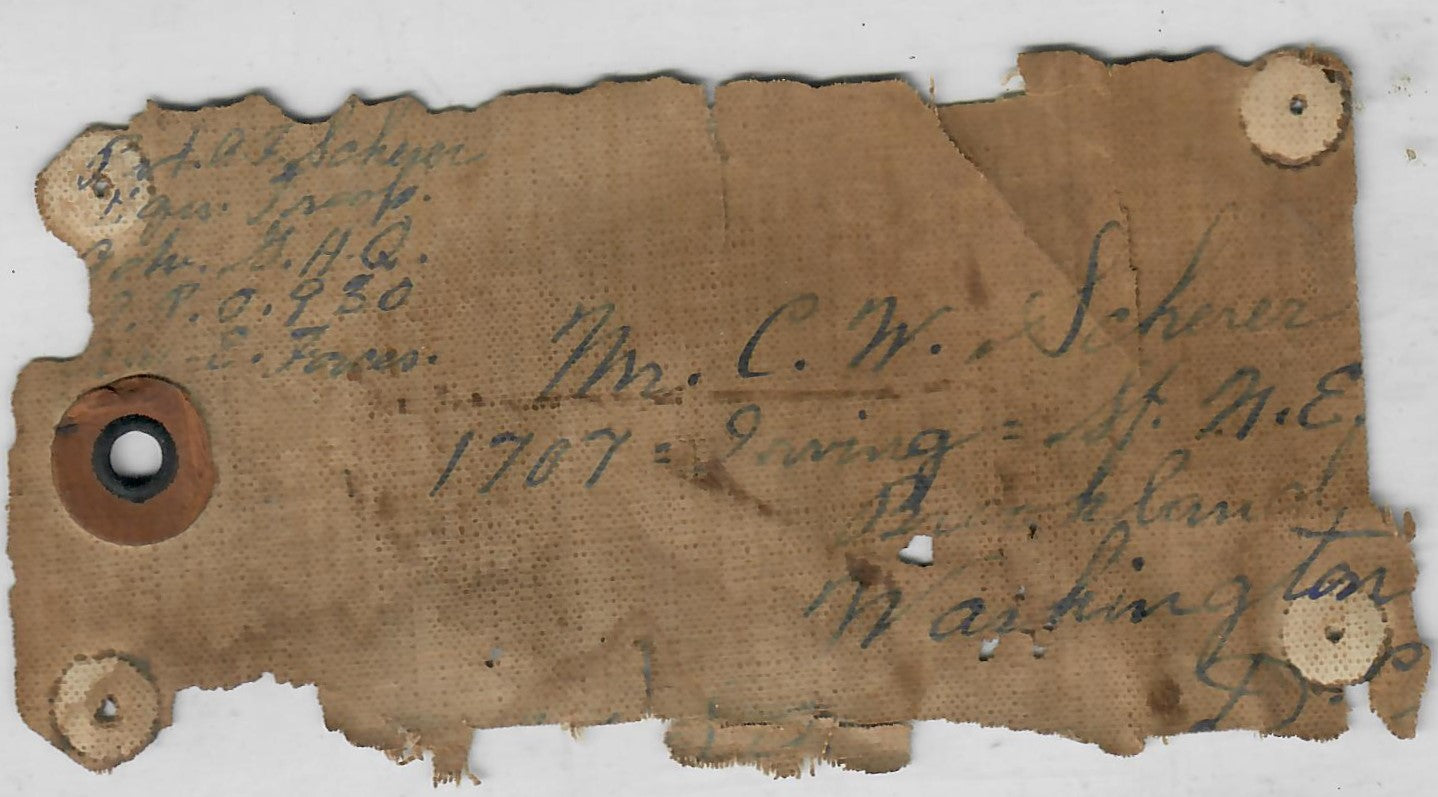 Pvt. A. F. Scherer
Hqrs. Troop.
Adv. G. H. Q.
A. P. O. 930
Am. E. Forces.
Mr. C. W. Scherer
1707 = Irving = St. N. E.
Brookland,
Washington
D. C.